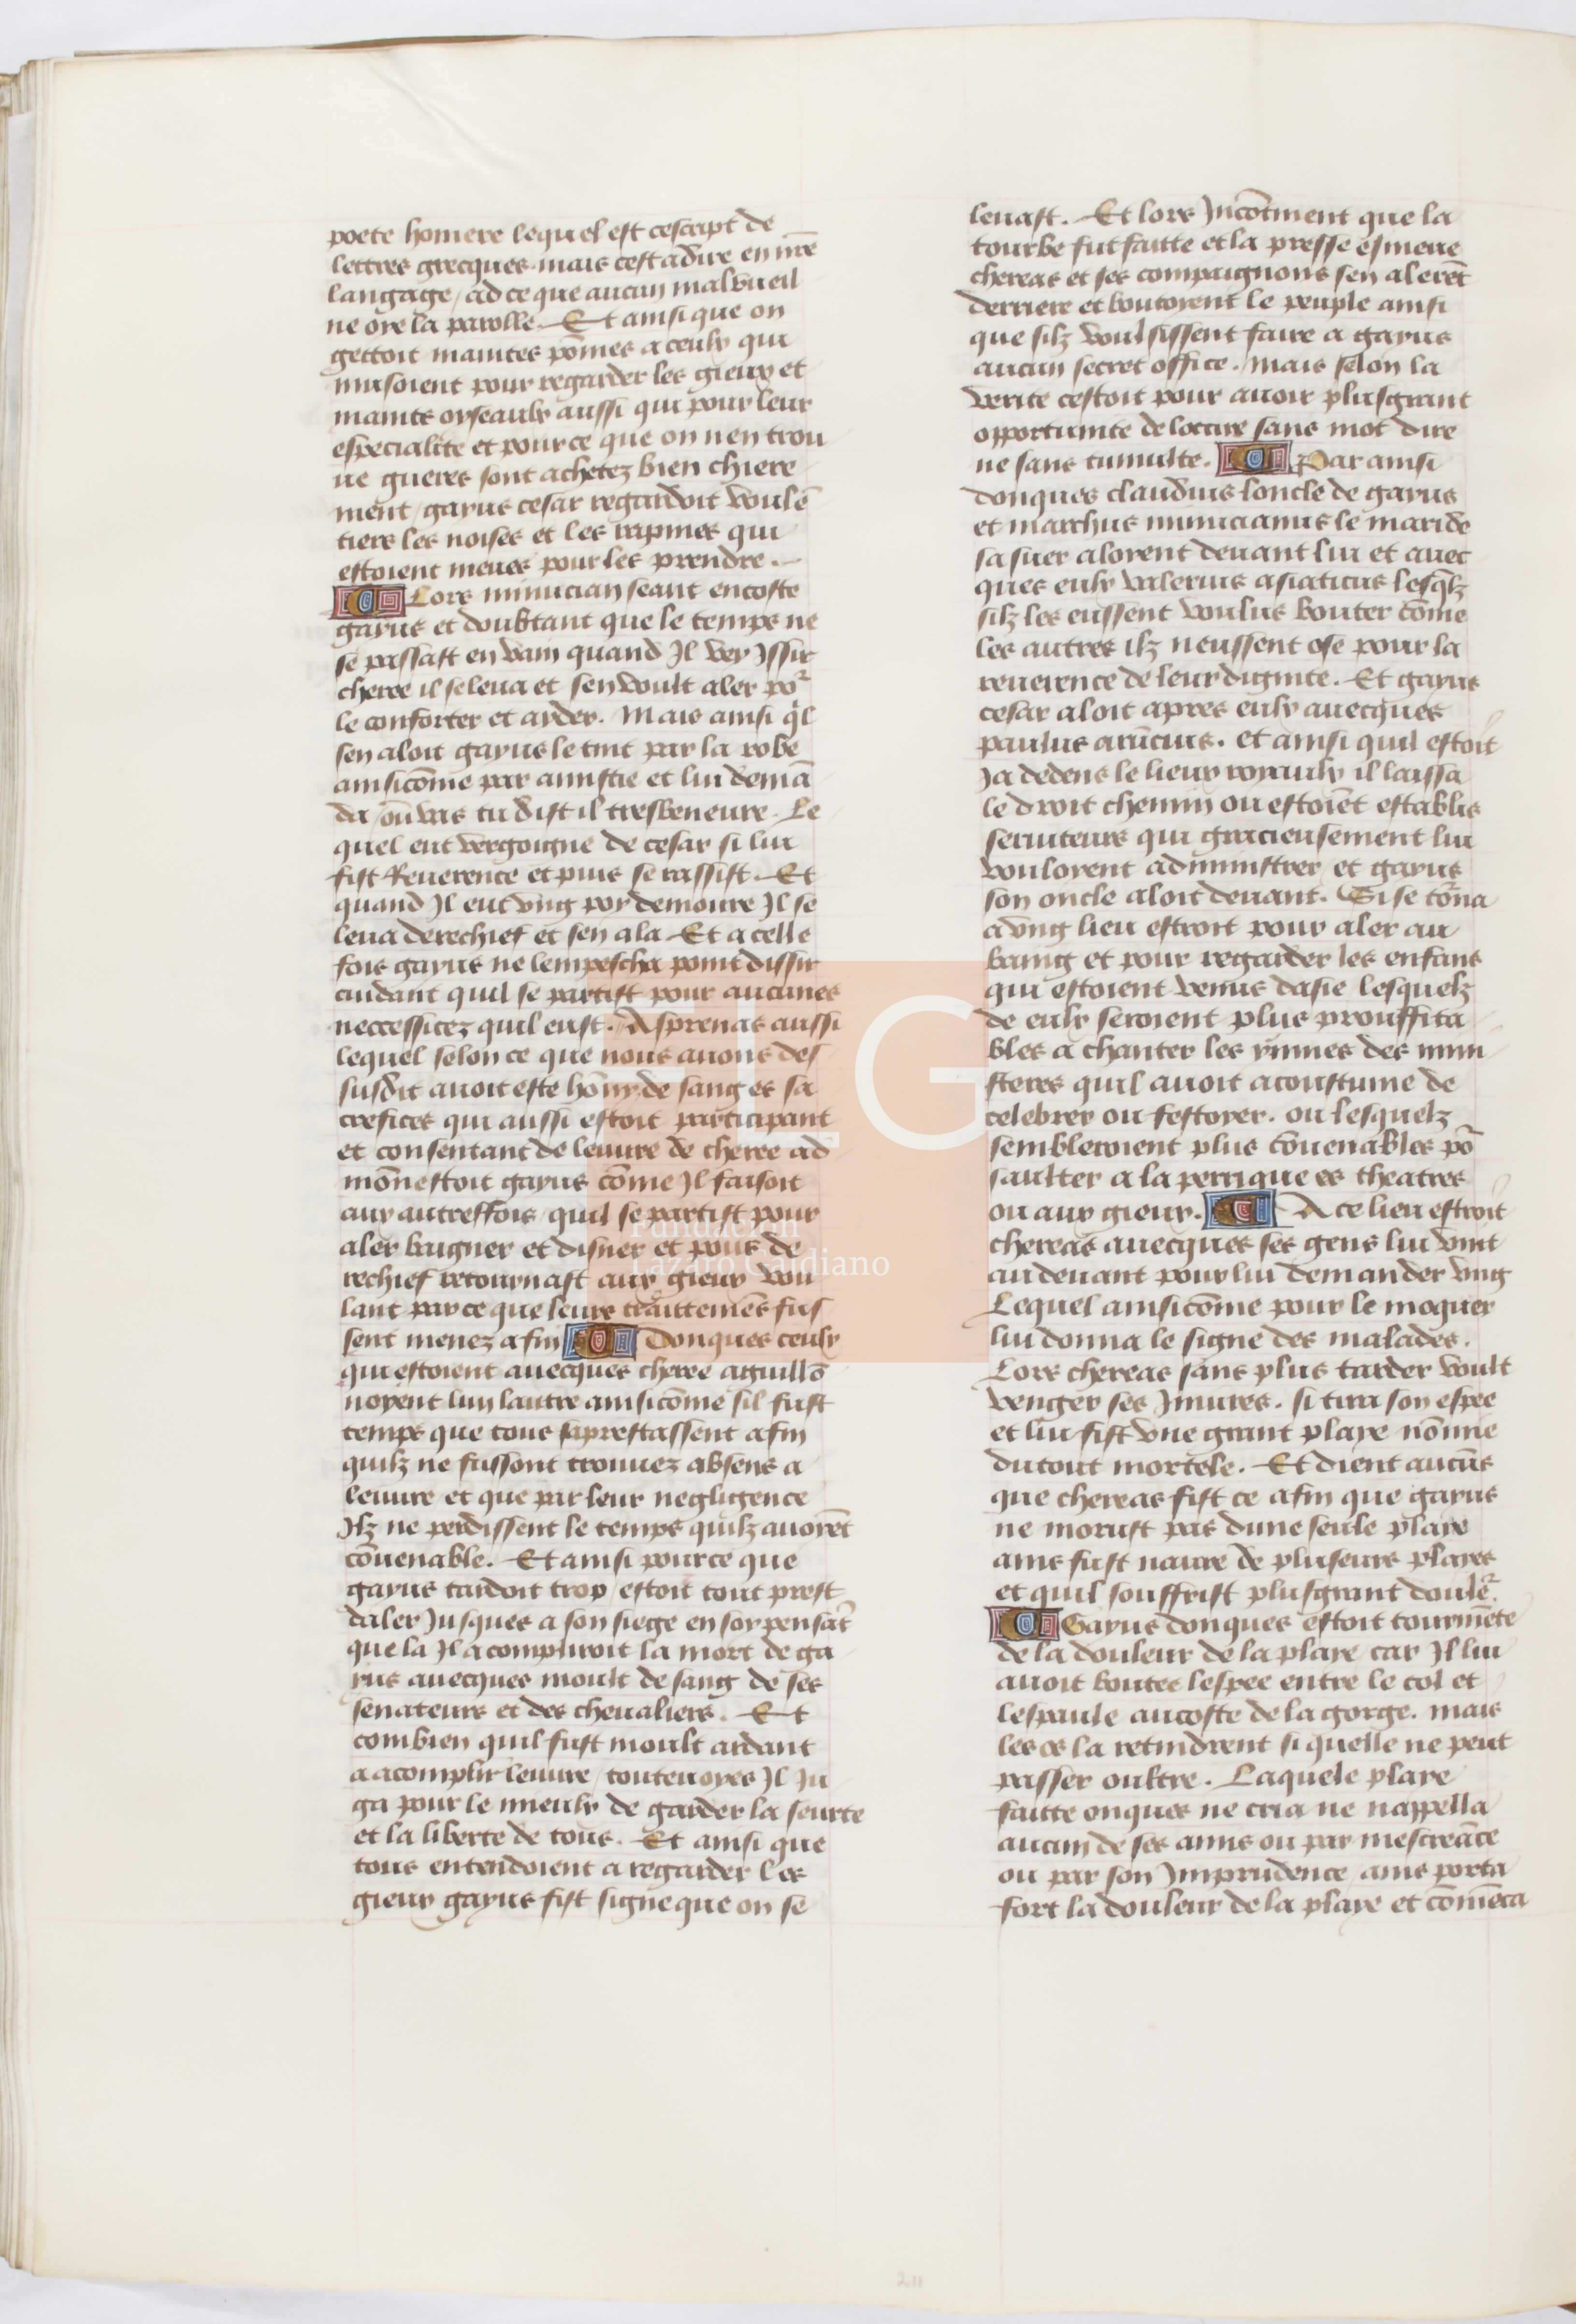 poete homere lequel est cescript de
lettres grecques. mais cest adire en nr̄e
langage / ad ce que aucun mal vueil
ne oye la parolle. Et ainsi que on
gettoit maintes pōmes a ceulx qui
musoient pour regarder les gieux et
mains oyseaulx aussi qui pour leur
especialite et pource que on nen trou
ue gueres sont achetez bien chiere
ment / gayus cesar regardoit voulē
tiers les noises et les rapines qui
estoient meues pour les prendre.
Lors minucian seant encoste
gayus et doubtant que le temps ne
se passast en vain quand Il vey Issir
cheree il se leua et sen voult aler por
le conforter et ayder. Mais ainsi q̄l
sen aloit gayus le tint par la robe
ainsi cōme par amistie et lui demā
da / ou vas tu dist il tresbeneure. Le
quel eut vergoigne de cesar si lui
fist Reuerence et puis se rassist. Et
quand Il eut vng poy demoure Il se
leua derechief et sen ala. Et a celle
fois gayus ne lempescha point dissir
cuidant quil se partist pour aucunes
neccessitez quil eust. Asprenas aussi
lequel selon ce que nous auons des
susdit auoit este hōny de sang es sa
crefices qui aussi estoit participant
et consentant de leuure de cheree ad
mōnestoit gayus cōme Il faisoit
aux autreffois quil se partist pour
aler baigner et disner et pous de
rechief retournast aux gieux vou
lant par ce que leurs traittemēs fus
sent menez a fin Donques ceulx
qui estoient auecques cheree aguillō
noyent lun lautre ainsi cōme sil fust
temps que tous saprestassent afin
quilz ne fussont trouuez absens a
leuure et que par leur negligence
Ilz ne perdissent le temps quilz auoyēt
cōuenable. Et ainsi pource que
gayus tardoit trop / estoit tout prest
daler Jusques a son siege en soy pensāt
que la Il acompliroit la mort de ga
yus auecques moult de sang de ses
senateurs et des cheualiers. Et
combien quil fust moult ardant
a acomplir leuure / touteuoyes Il Ju
ga pour le mieulx de garder la seurte
et la liberte de tous. Et ainsi que
tous entendoient a regarder les
gieux gayus fist signe que on se
leuast. Et lors Incōtinent que la
tourbe fut faitte et la presse esmeue
chereas et ses compaignons sen alerēt
derriere et boutoyent le peuple ainsi
que silz voulsissent faire a gayus
aucun secret office. Mais selon la
verite cestoit pour auoir plusgrant
opportunite de loccire sans mot dire
ne sans tumulte. Par ainsi
donques claudius loncle de gayus
et marchus minucianus le mari de
sa suer aloyent deuant lui et auec
ques eulx valerius asiaticus lesq̄lz
silz les eussent voulus bouter cōme
les autres ilz neussent ose pour la
reuerence de leur dignite. Et gayus
cesar aloit apres eulx auecques
paulus arūcius. et ainsi quil estoit
Ja dedens le lieux royaulx il laissa
le droit chemin ou estoiēt establis
seruiteurs qui gracieusement lui
vouloyent administrer et gayus
son oncle aloit deuant. Si se tōrna
a vng lieu estroit pour aler au
baing et pour regarder les enfans
qui estoient venus dasie lesquelz
de eulx seroient plus prouffita
bles a chanter les ymnes des mini
steres quil auoit acoustume de
celebrer ou festoyer. ou lesquelz
sembleroient plus cōuenables pō
saulter a la perrique es theatres
ou aux gieux. A ce lieu estroit
chereas auecques ses gens lui vint
au deuant pour lui demander vng
Lequel ainsi cōme pour le moquer
lui donna le signe des malades.
Lors chereas sans plus tarder voult
venger ses Iniures. si tira son espee
et lui fist vne grant playe nōmie
du tout mortele. Et dient aucūs
que chereas fist ce afin que gayus
ne morust pas dune seule playe
ains fust naure de pluseurs playes
et quil souffrist plusgrant doulēr
Gayus donques estoit tourmēte
de la douleur de la playe car Il lui
auoit boutee lespee entre le col et
lespaule au coste de la gorge. mais
les os la retindrent si quelle ne peut
passer oultre. Laquele playe
faitte onques ne cria ne nappella
aucun de ses amis ou par mescreāce
ou par son Imprudence / ains porta
fort la douleur de la playe et cōmēca
FLG
Fundación
Lázaro Galdiano
211